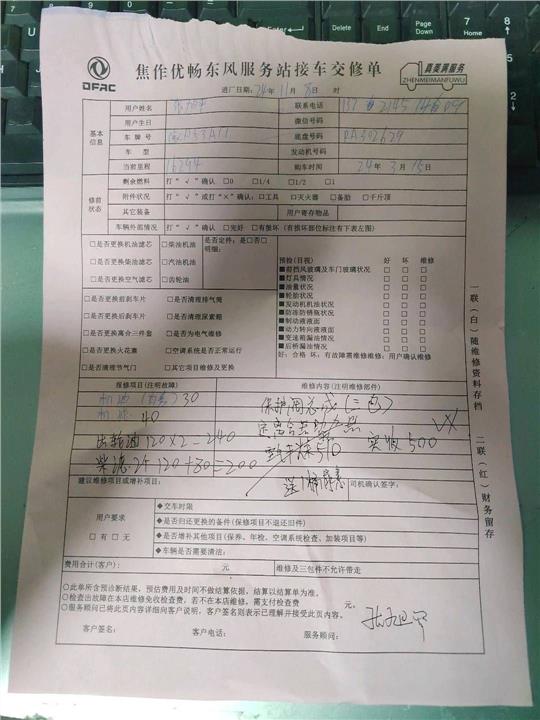 DFAC
焦作优畅东风服务站接车交修单
真要满服务
ZHENMEIMANFUWU
进厂日期：24年11月8日 时
基本信息
用户姓名
联系电话
用户生日
微信号码
车牌号
底盘号码 RA302629
车型
发动机号码
当前里程 16294
购车时间 24年3月15日
修前状态
剩余燃料 打“√”确认 □0 □1/4 □1/2 □1
附件状况 打“√”或打“×”确认：□工具 □灭火器 □备胎 □千斤顶
其它装备
用户寄存物品
车辆外部情况 打“√”确认 □完好 □有损坏（有损坏部位标注有下表左图）
□是否更换机油滤芯 □柴油机油
□是否更换柴油滤芯 □汽油机油
□是否更换空气滤芯 □齿轮油
是否定件：是□否□
明细：
□是否更换前刹车片 □是否清理排气筒
□是否更换后刹车片 □是否清理尿素箱
□是否更换离合三件套 □是否为电气维修
□是否更换火花塞 □空调系统是否正常运行
□是否清理节气门 □其它项目维修及更换
预检(目视) 好 坏 维修
■前挡风玻璃及车门玻璃状况 □ □ □
■灯具情况 □ □ □
■油量状况 □ □ □
■轮胎状况 □ □ □
■发动机机油状况 □ □ □
■防冻防锈瓶状况 □ □ □
■制动液液面 □ □ □
■动力转向液液面 □ □ □
■变速箱漏油情况 □ □ □
■后桥漏油情况 □ □ □
好：合格 坏：有故障需维修维修：用户确认维修
报修项目(注明故障)
维修内容(注明维修部件)
30
40
齿轮油120×2=240
120+80=200
保护阀总成(三包)
510 实收500
建议维修项目或增补项目：
司机确认签字：
用户要求
□有 □无
◆交车时限
◆是否归还更换的备件(保修项目不退还旧件)
◆是否增补其他项目(保养、年检、空调系统检查、加装项目等)
◆车辆是否需要清洁：
费用合计(客户): 元
维修及三包件不允许带走
○此单所含预诊断结果，预估费用及时间不做结算依据，结算以结算单为准。
○检查出故障在本店维修免收检查费，若不在本店维修，需支付检查费 元。
○服务顾问已将此页内容详细向客户说明，客户签名则表示已理解并接受此页内容。
客户签名：
客户电话：
服务顾问：
一联(白)随维修资料存档
二联(红)财务留存